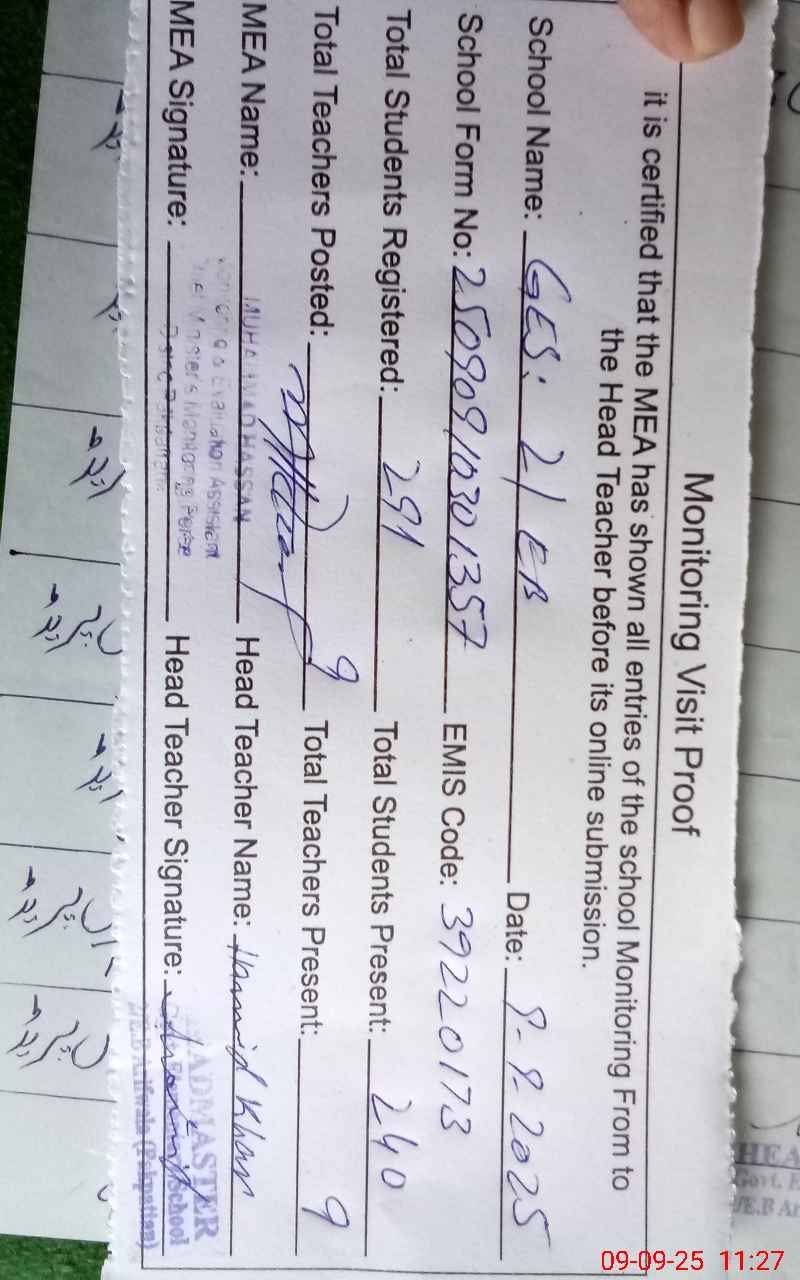 Monitoring Visit Proof
it is certified that the MEA has shown all entries of the school Monitoring From to
the Head Teacher before its online submission.
School Name: GES: 21 EB Date: 9-9-2025
School Form No: 25090910301357 EMIS Code: 39220173
Total Students Registered: 291 Total Students Present: 240
Total Teachers Posted: 9 Total Teachers Present: 9
MEA Name: MUHAMMAD HASSAN Head Teacher Name: Hamid Khan
Monitoring & Evaluation Assistant
MEA Signature: Head Teacher Signature:
HEADMASTER
School
/E.B Arifwala (Pakpattan)
HEA
Govt. E
/E.B Ar
09-09-25 11:27